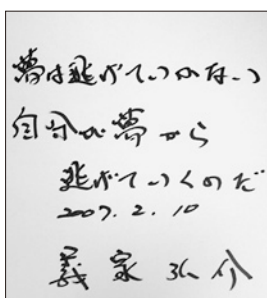 夢は逃げていかない
自分が夢から
逃げていくのだ
2007. 2. 10
義家弘介